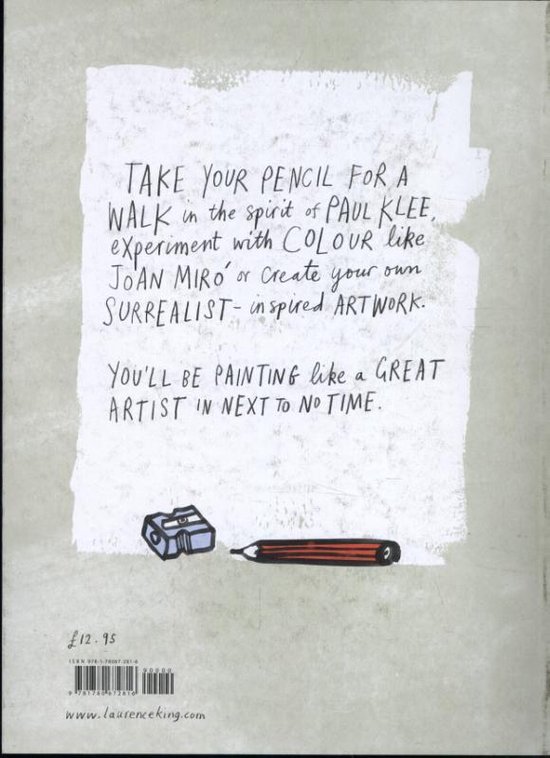 TAKE YOUR PENCIL FOR A
WALK in the spirit of PAUL KLEE,
experiment with COLOUR like
JOAN MIRÓ or create your own
SURREALIST-inspired ARTWORK.
YOU'LL BE PAINTING like a GREAT
ARTIST IN NEXT TO NO TIME.
£12.95
ISBN 978-1-78067-281-6
90000
9 781780 672816
www.laurenceking.com